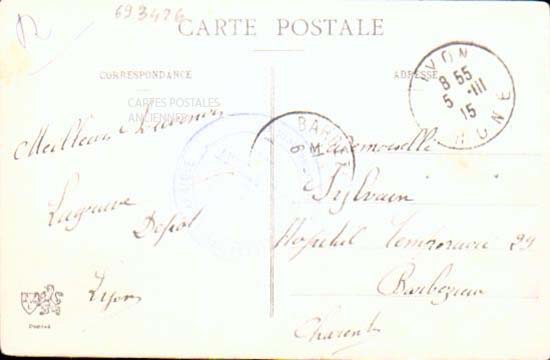 693476
CARTE POSTALE
CORRESPONDANCE
ADRESSE
CARTES POSTALES
ANCIENNES
LYON
8 55
5 - III
15
RHONE
BARB
6 M
Meilleurs Souvenirs
Lagrave
Dépôt
Lyon
Mademoiselle
Sylvain
Hopital Temporaire 29
Barbezieux
Charente